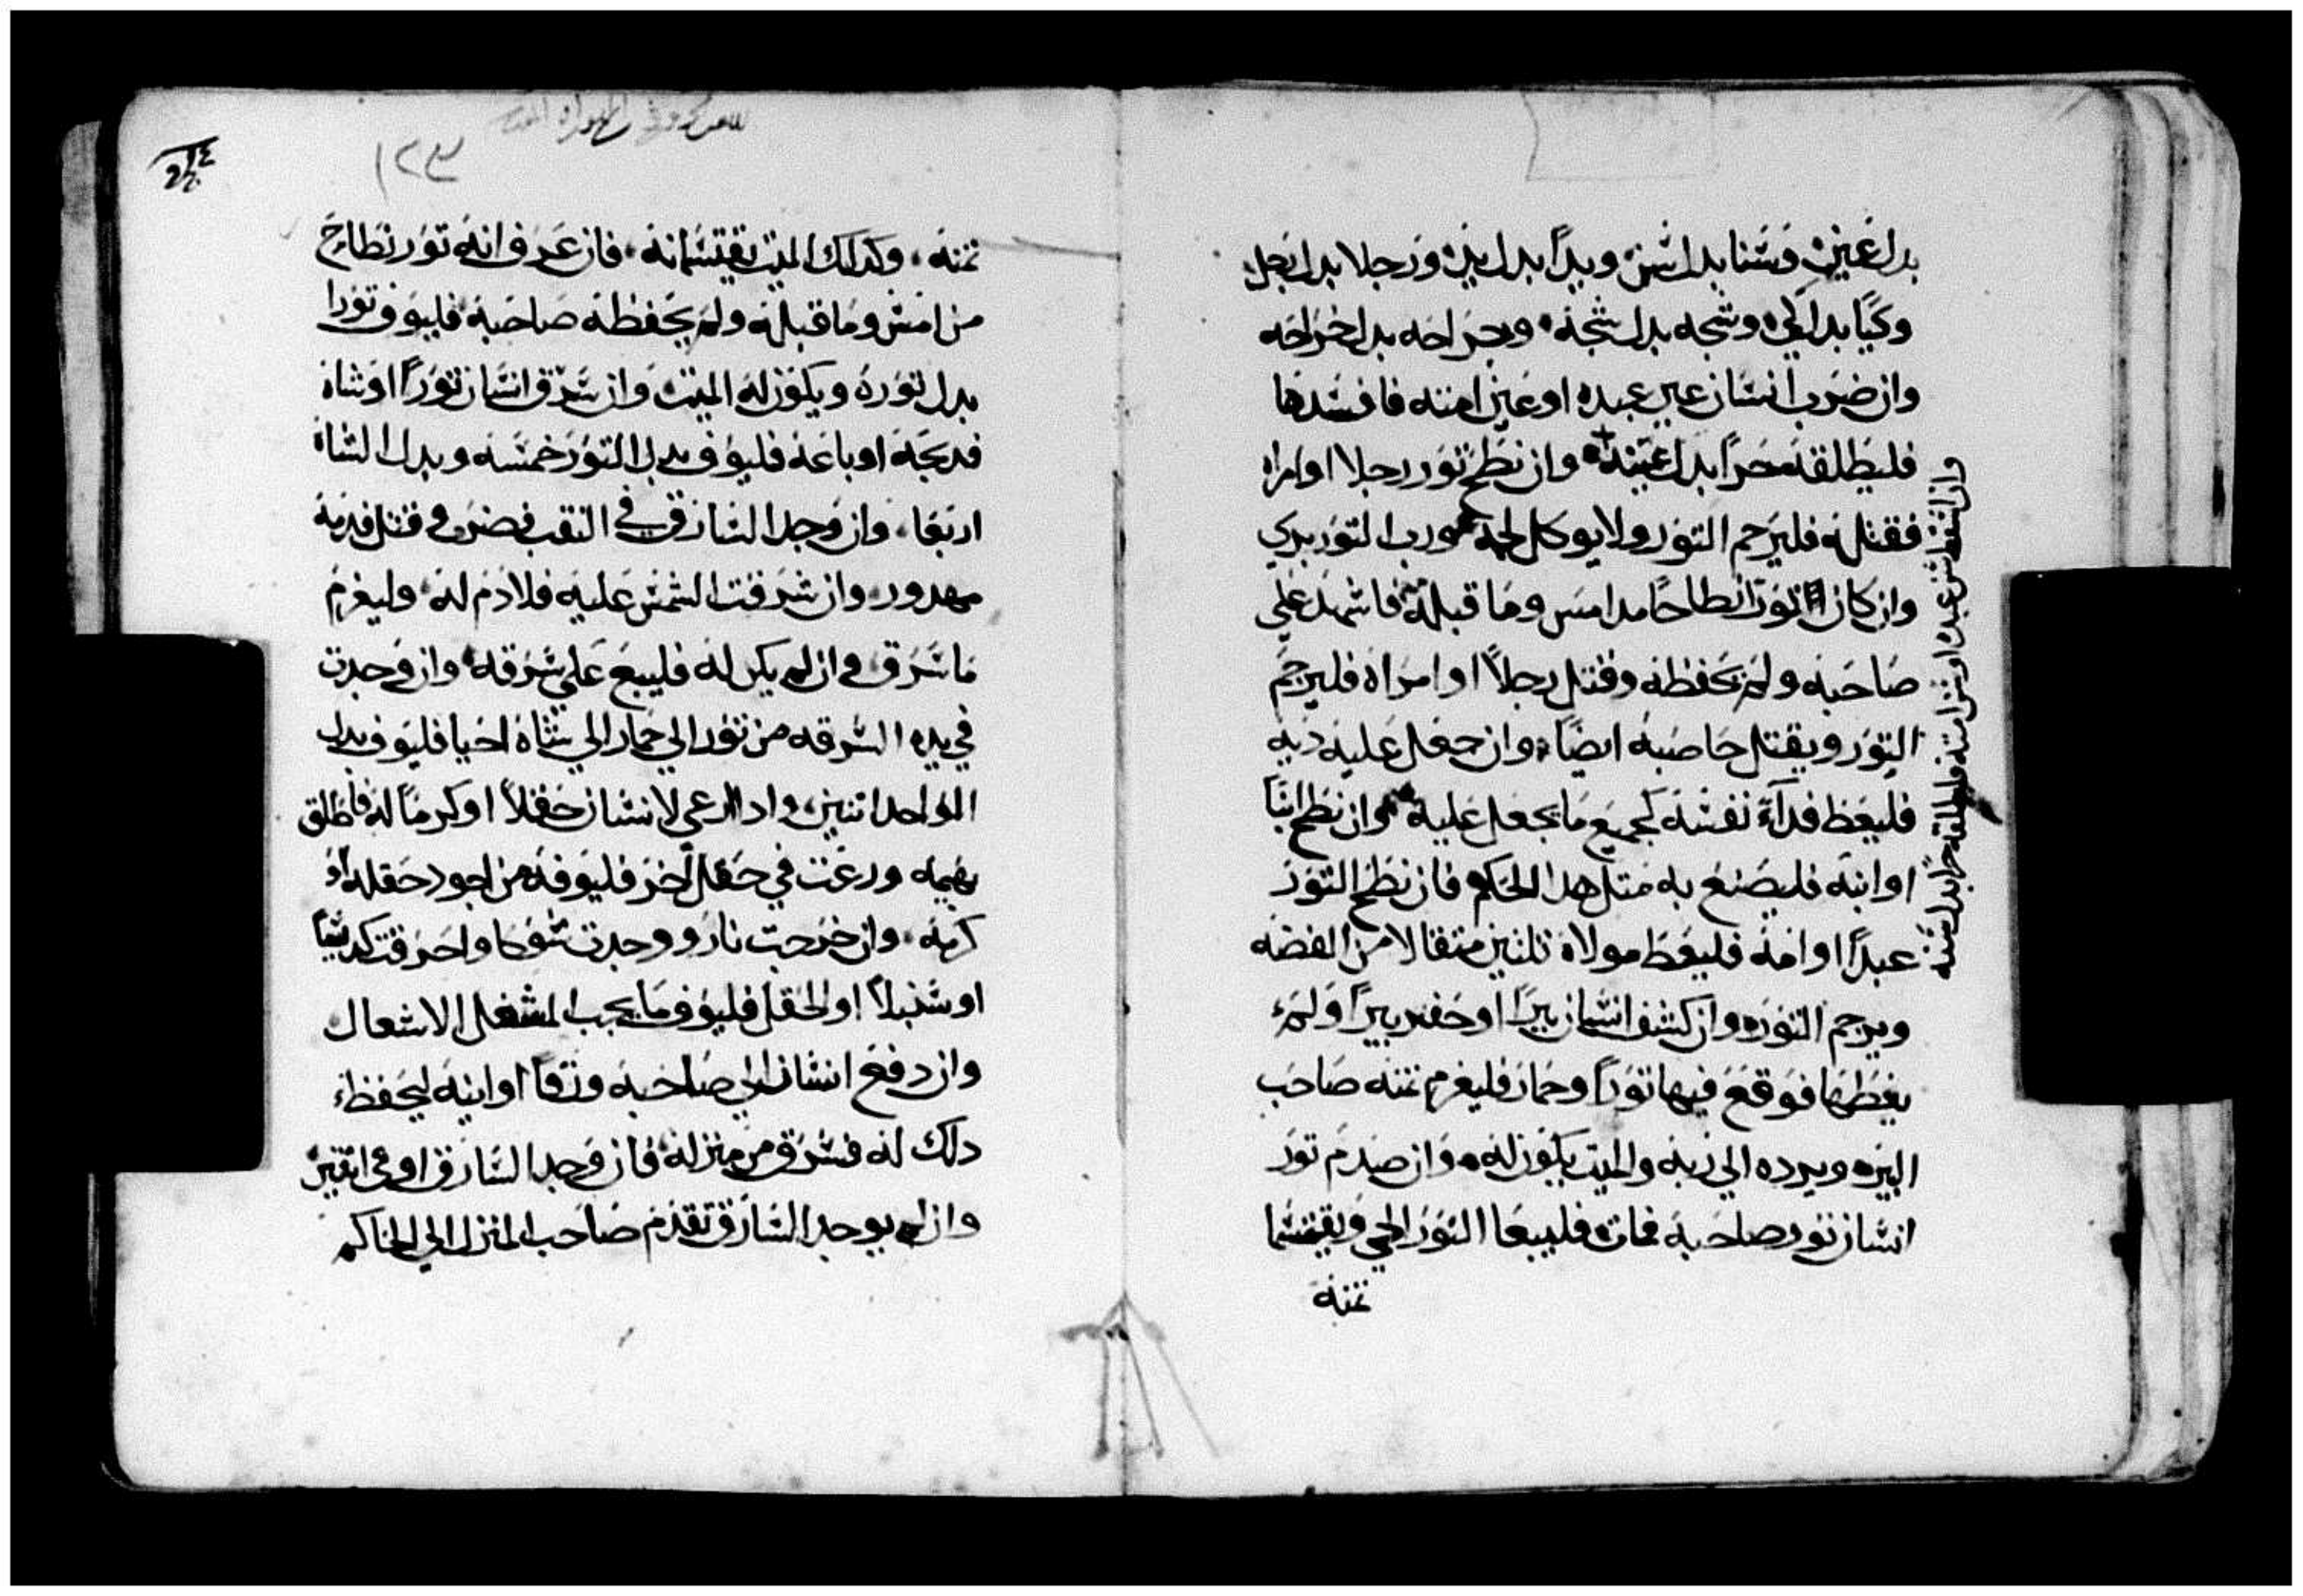 بدل عين وسنا بدل سن ويدًا بدل يد ورجلا بدل رجل
وكيًا بدل كي وشجه بدل شجه وجراحه بدل جراحه
وان ضرب انسان عين عبده او عين امته فافسدها
فليطلقه حرًا بدل عينه وان نطح تور رجلا او امراه
فقتله فليرجم التور ولا يوكل لحمه ورب التور بري
وان كان التور نطاحًا مد امس وما قبله فاشهد علي
صاحبه ولم يحفظه وقتل رجلاً او امراه فليرجم
التور ويقتل صاحبه ايضًا وان جعل عليه ديه
فليعط فدآء نفسه كجميع ما يجعل عليه وان نطح ابنًا
او ابنه فليصنع به متل هدا الحكم فان نطح التور
عبدًا او امه فليعط مولاه تلتين متقالا من الفضه
ويرجم التور وان كشف انسان بيرًا او حفر بيرًا ولم
يغطها فوقع فيها تورًا وحمار فليغرم تمنه صاحب
البير ويرده الي ربه والميت يكون له وان صدم تور
انسان تور صاحبه فمات فليبيعا التور الحي ويقتسما
تمنه
وان اسقط سن عبده او سن امته فليطلقه حرًا بدل سنه
١٢٣
تمنه وكدلك الميت يقتسمانه فان عرف انه تور نطاح
من امس وما قبله ولم يحفظه صاحبه فليوف تورا
بدل توره ويكون له الميت وان سرق انسان تورًا او شاه
فدبحه او باعه فليوف بدل التور خمسه وبدل الشاه
اربعا وان وجد السارق في النقب فضرب وقتل فدمه
مهدور وان شرقت الشمس عليه فلا دم له وليغرم
ما سرق وان لم يكن له فليبع علي سرقه وان وجدت
في يده السرقه من تور الي حمار الي شاه احيا فليوف بدل
الواحد اتنين وادا ارعي لانسان حقلاً او كرمًا له فاطلق
بهيمه ورعت في حقل اخر فليوفه من اجود حقله او
كرمه وان خرجت نار ووجدت شوكا واحرقت كديسًا
او سنبلاً او الحقل فليوف ما يجب المشعل الاشعال
وان دفع انسان الي صاحبه ورقًا او انيه ليحفظ
دلك له فسرق من منزله فان وجد السارق اوفي اتنين
وان لم يوجد السارق تقدم صاحب المنزل الي الحاكم